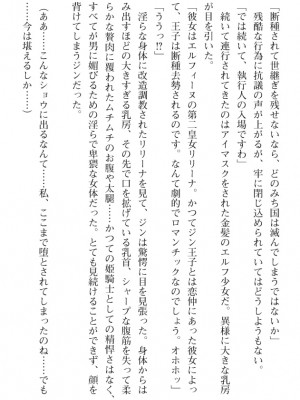 「断種されて世継ぎを残せないなら、どのみち国は滅んでしまうではないか」
残酷な行為に抗議の声が上がるが、牢に閉じ込められていてはどうしようもない。
「では続いて、執行人の入場ですわ」
続いて連行されてきたのはアイマスクをされた金髪のエルフ少女だ。異様に大きな乳房
が目を引いた。
「彼女はエルフィーヌの第二皇女リリーナ。かつてジン王子とは恋仲にあった彼女によっ
て、王子は断種去勢されるのです。なんて劇的でロマンチックなのでしょう。オホホッ」
「ううっ!?」
淫らな身体に改造調教されたリリーナを見て、ジンは驚愕に目を見張った。身体からは
み出すほどの大きすぎる乳房、その先で口を拡げている乳首、シャープな腹筋を失って柔
らかな贅肉に覆われたムチムチのお腹や太腿……かつての姫騎士としての精悍さはなく、
すべてが男に媚びるための淫らで卑猥な女体だった。とても見続けることができず、顔を
背けてしまうジンだった。
(ああ……こんなショウに出るなんて……私、ここまで堕とされてしまったのね……でも
……今は堪えるしか……)